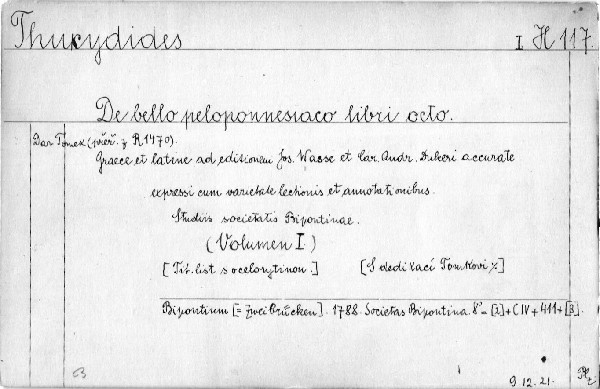 Thukydides I H 117.
De bello peloponnesiaco libri octo.
Dar Tomek (přeř. z R 1470).
Graece et latine ad editionem Jos. Wasse et Car. Andr. Dukeri accurate
expressi cum varietate lectionis et annotationibus.
Studiis societatis Bipontinae.
(Volumen I.)
[Tit. list s ocelorytinou.] [S dedikací Tomkovi]
Bipontium [= Zweibrücken]. 1788. Societas Bipontina. 8° - [2] + CIV + 411 + [3].
B 9.12.21.